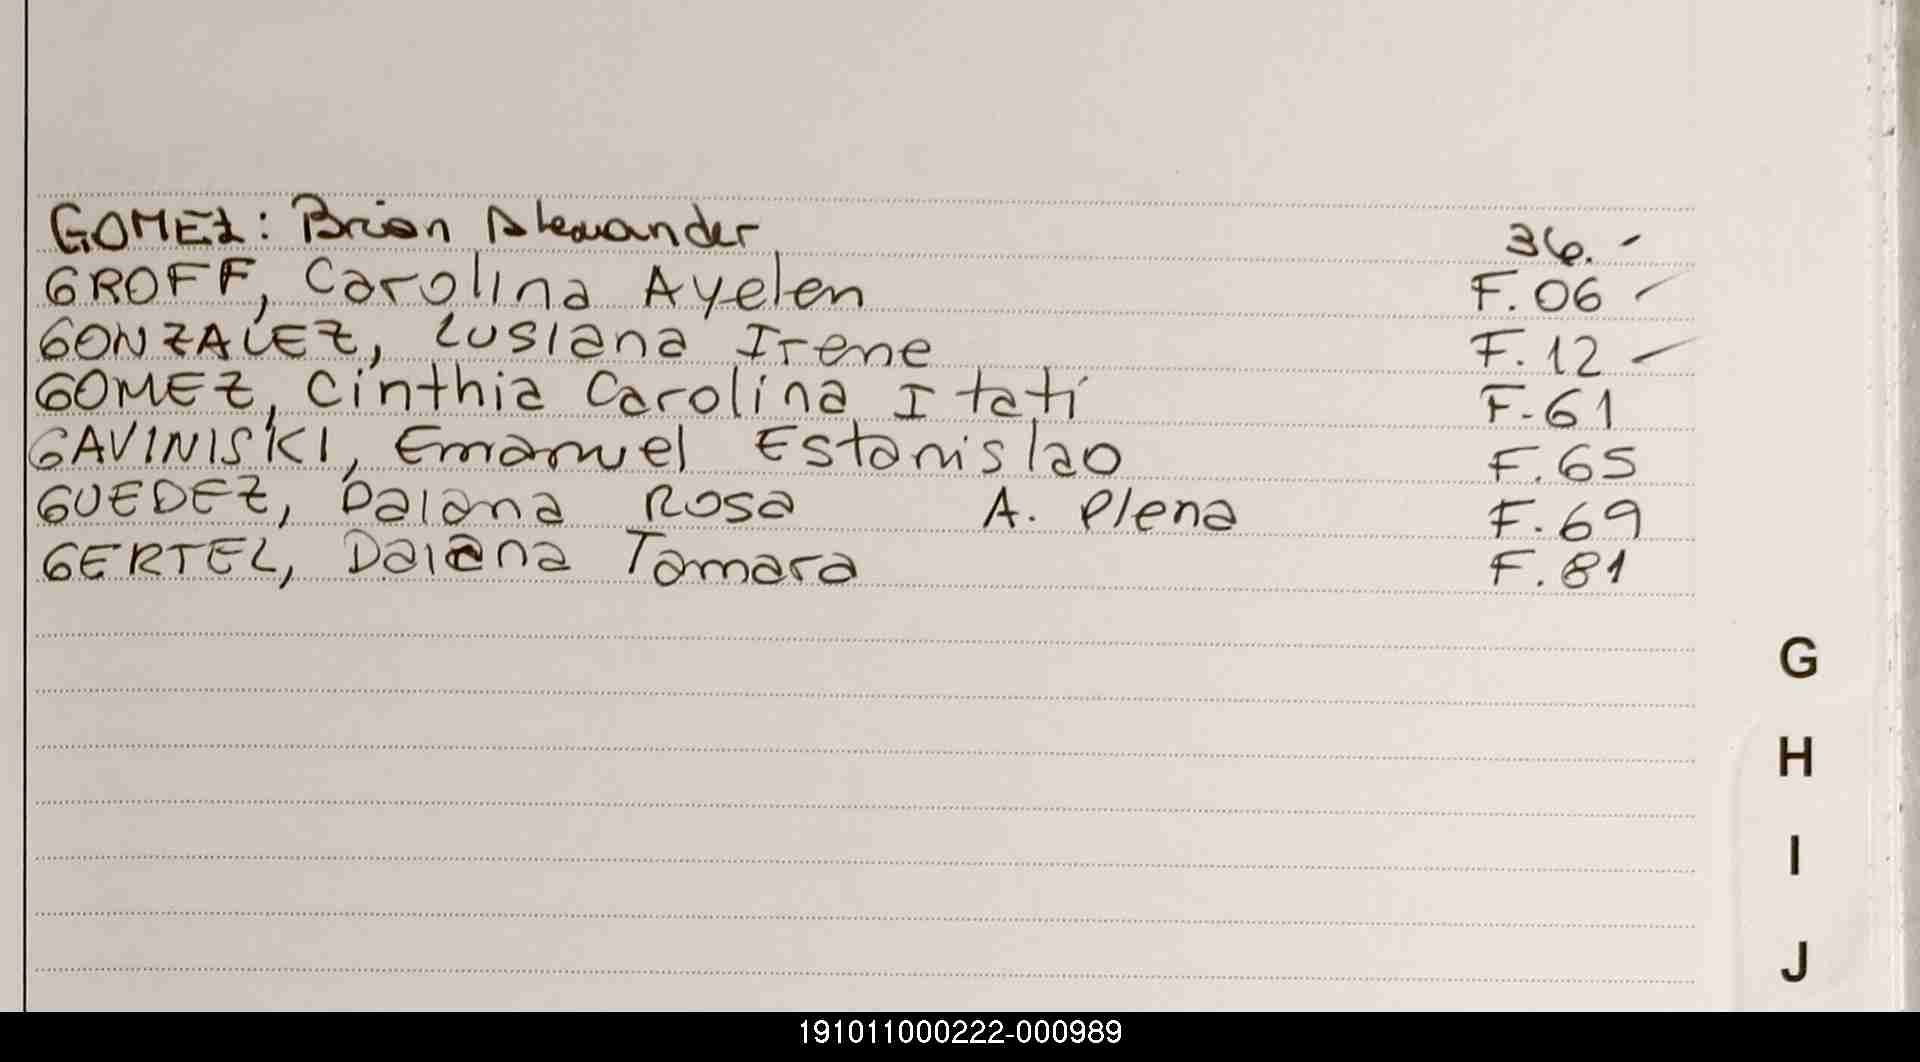 GOMEZ: Brian Alexander 36.-
GROFF, Carolina Ayelen F.06 -
GONZALEZ, Lusiana Irene F.12 -
GOMEZ, Cinthia Carolina Itati F-61
GAVINISKI, Emanuel Estanislao F.65
GUEDEZ, Daiana Rosa A. Plena F.69
GERTEL, Daiana Tamara F.81
G
H
I
J
191011000222-000989